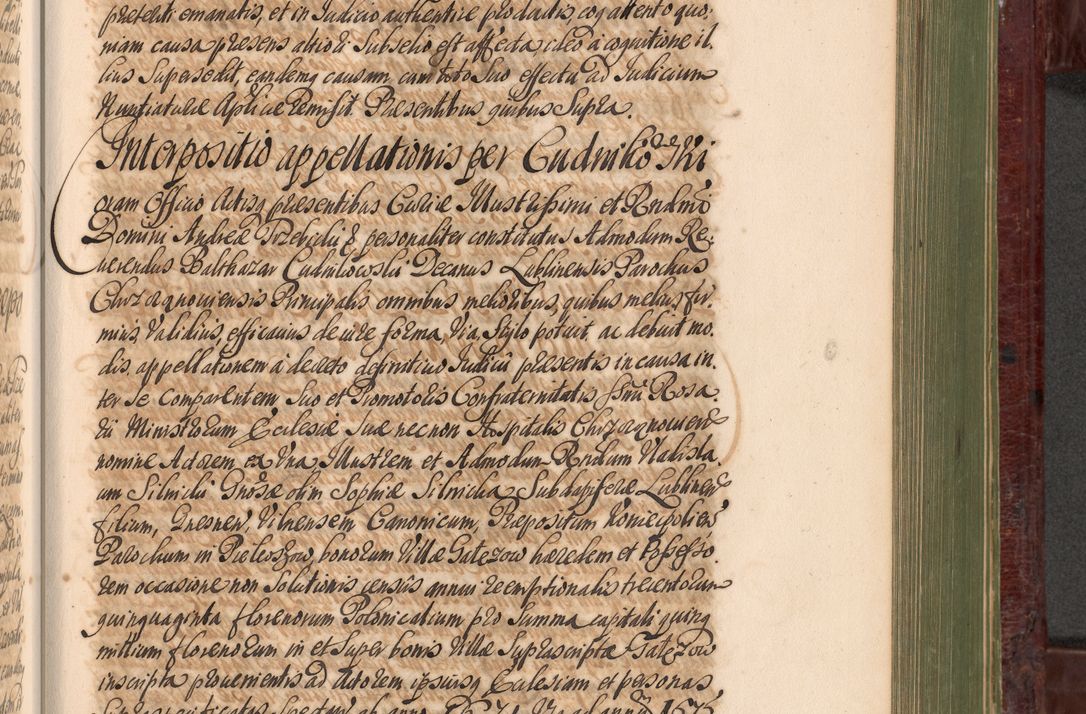 pretenti emanatis, et in Judicio authentice productis, cog attento quo:
niam causa præsens altiori Subselio est affecta ideo à cognitione il:
lius Supersedit, eandemq causam cum toto suo effectu ad Judicium
Nuntiaturæ Aplicæ remisit. Præsentibus quibus Supra.
Interpositio appellationis per Cudnikō
Coram Officio Actisq præsentibus Curiæ Illustrissimi et Rndmi
Domini Andreæ Trzebicki & personaliter constitutus Admodum Re:
verendus Balthazar Cudnikowski Decanus Lublinensis Parochus
Principalis omnibus melioribus, quibus melius, fir:
mius, validius, efficacius de iure forma, via, Stylo potuit ac debuit mo:
dis, appellationem à decreto definitivo Judicii præsentis in causa in:
ter se comparentem suo et Promotoris Confraternitatis Ssmi Rosa:
rii Ministrorum Ecclesiæ suæ necnon Hospitalis
nomine Actorem ex una Illustrem et Admodum Rndum Vladisla:
um Silnicki Gnosæ olim Sophiæ Silnicka Subdapiferæ Lublinen
filium, Gnesnen, Vilnensem Canonicum, Præpositum
Parochum in bonorum Villæ Gutezow hæredem et Possesso:
rem occasione non Solutionis censûs annui reemptionalis trecentorum
quinquaginta florenorum Polonicalium pro Summa capitali quinq
millium florenorum in et super bonis Villæ Suprascriptæ
inscripta provenientis ad Actorem ipsiusq Ecclesiam et personas